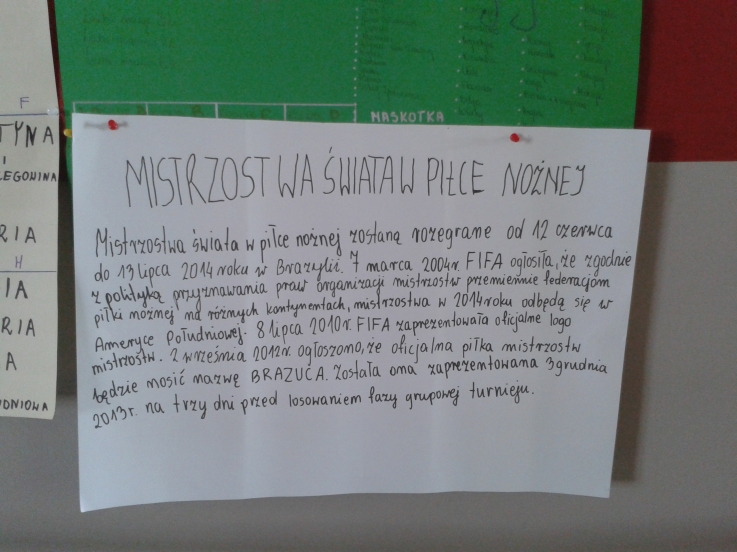 F
TYNA
I
EGOWINA
RIA
H
IA
RIA
A
UDNIOWA
MASKOTKA
MISTRZOSTWA ŚWIATA W PIŁCE NOŻNEJ
Mistrzostwa świata w piłce nożnej zostaną rozegrane od 12 czerwca
do 13 lipca 2014 roku w Brazylii. 7 marca 2004r. FIFA ogłosiła, że zgodnie
z polityką przyznawania praw organizacji mistrzostw przemiennie federacjom
piłki nożnej na różnych kontynentach, mistrzostwa w 2014 roku odbędą się w
Ameryce Południowej. 8 lipca 2010r. FIFA zaprezentowała oficjalne logo
mistrzostw. 2 września 2012r. ogłoszono, że oficjalna piłka mistrzostw
będzie nosić nazwę BRAZUCA. Została ona zaprezentowana 3 grudnia
2013r. na trzy dni przed losowaniem fazy grupowej turnieju.